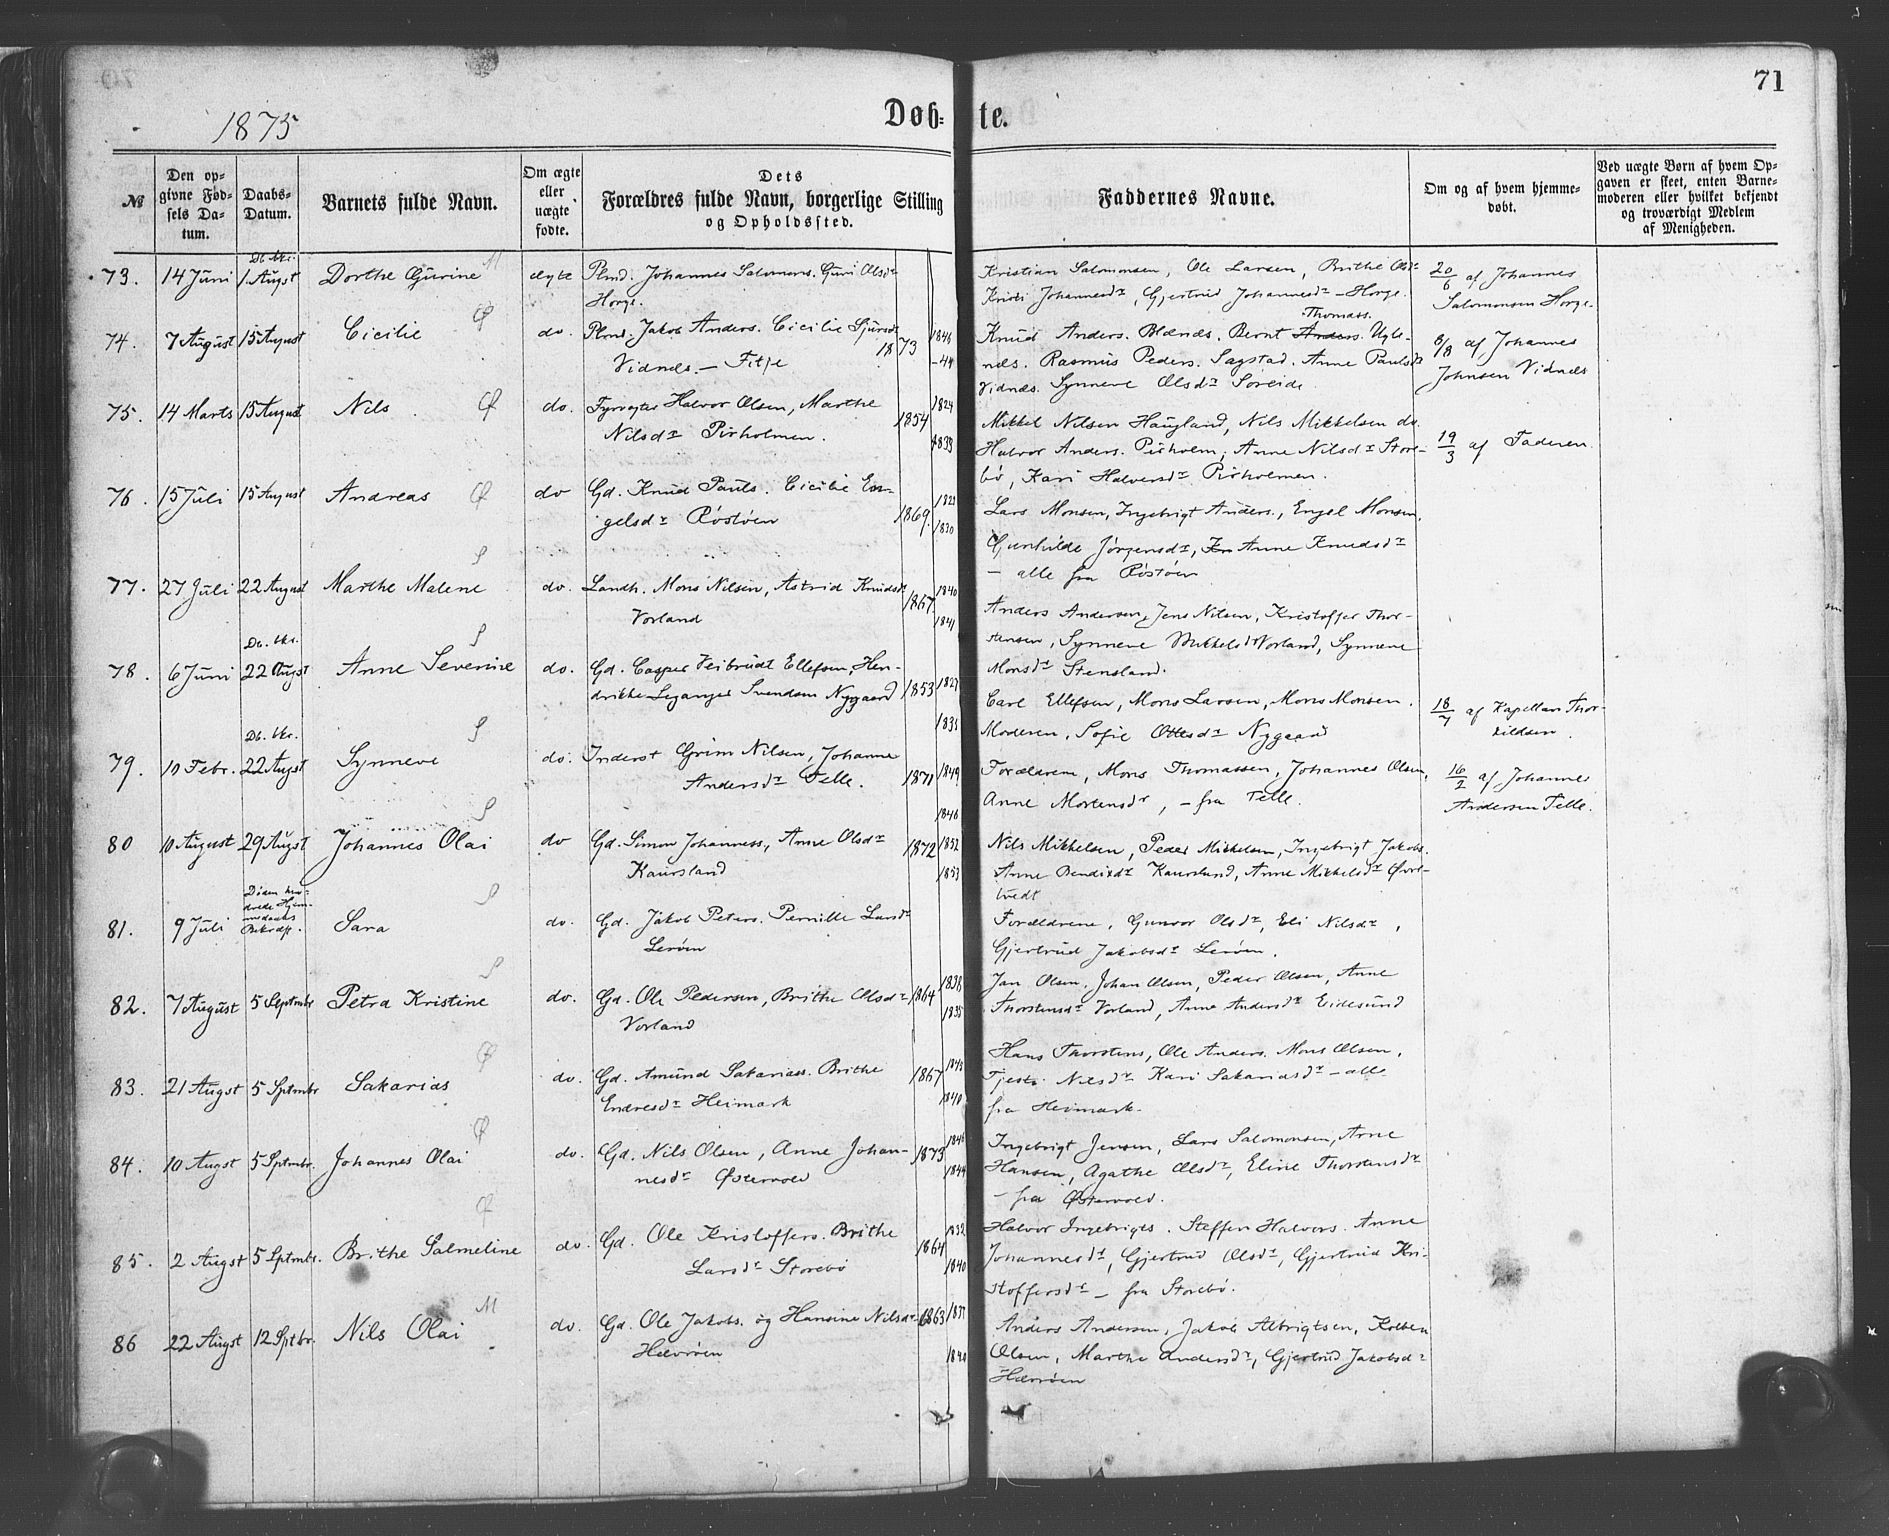 71
1875
Døb- te.
№
Den opgivne Fødsels Datum.
Daabs-Datum.
Barnets fulde Navn.
Om ægte eller uægte fødte.
Dets Forældres fulde Navn, borgerlige Stilling og Opholdssted.
Faddernes Navne.
Om og af hvem hjemmedøbt.
Ved uægte Børn af hvem Opgaven er skeet, enten Barnemoderen eller hvilket bekjendt og troværdigt Medlem af Menigheden.
73. 14 Juni 1 Augst Dorthe Gurine M ægte Plmd. Johannes Salomons. Guri Olsdr
Horge.
Kristian Salomonsen, Ole Larsen, Brithe Olsdr
Kristi Johannesdr, Gjertrud Johannesdr - Horge.
20/6 af Johannes
Salomonsen Horge.
74. 7 August 15 August Cicilie Ø do. Plmd. Jakob Anders. Cicilie Sjursdr
Vidnæs. - Fitje 1873 1846
-44
Thomass.
Knud Anders. Blænæs. Bernt Anders. Ugle-
næs. Rasmus Peders. Sagstad. Anne Paulsdr
Vidnæs. Synneve Olsdr Søreide.
8/8 af Johannes
Johnsen Vidnæs
75. 14 Marts 15 August Nils Ø do. Fyrvogter Halvor Olsen, Marthe
Nilsdr Pirholmen. 1854 1824
1833
Mikkel Nilsen Haugland, Nils Mikkelsen do.
Halvor Anders. Pirholm, Anne Nilsdr Store-
bø, Kari Halvorsdr Pirholmen.
19/3 af Faderen.
76. 15 Juli 15 August Andreas Ø do Gd. Knud Pauls. Cicilie En-
gelsdr Røstøen 1869. 1830
Lars Monsen, Ingebrigt Anders., Engel Monsen,
Gunhilde Jørgensdr, Anne Knudsdr
- alle fra Røstøen
77. 27 Juli 22 August Marthe Malene S do. Landh. Mons Nilsen, Astrid Knudsdr
Vorland 1867 1840
1841
Anders Andersen, Jens Nilsen, Kristoffer Thor-
stensen, Synneve Mikkelsdr Vorland, Synneve
Monsdr Stensland.
78. 6 Juni 22 Augst Anne Severine S do. Gd. Casper Veibrudt Ellefsen, Hen-
drikke Leganger Svendsen Nygaard 1853 1827
1835
Carl Ellefsen, Mons Larsen, Mons Monsen.
Moderen, Sofie Ottesdr Nygaard
18/7 af Kapellan Thor-
kildsen.
79. 10 Febr. 22 Augst Synneve S do. Inderst Grim Nilsen, Johanne
Andersdr Telle. 1871 1849
1846
Forældrene, Mons Thomassen, Johannes Olsen,
Anne Mortensdr, - fra Telle.
16/2 af Johannes
Andersen Telle.
80 10 August 29 Augst Johannes Olai S do Gd. Simon Johanness, Anne Olsdr
Kaursland 1872 1852
1853
Nils Mikkelsen, Peder Mikkelsen, Ingebrigt Jakobs.
Anne Bendixdr Kaursland, Anne Mikkelsdr Øvre-
tvedt
81. 9 Juli Døden hin-
drede Hjem-
medaabs
Bekræft. Sara S do. Gd. Jakob Peters. Pernille Larsdr
Lerøen
Forældrene, Gunvor Olsdr, Eli Nilsdr,
Gjertrud Jakobsdr Lerøen.
82. 7 August 5 Septmbr Petra Kristine S do. Gd. Ole Pedersen, Brithe Olsdr
Vorland 1864 1838
1835
Jan Olsen, Johan Olsen, Peder Olsen, Anne
Thorstensdr Vorland, Anne Andersdr Eidesund
83. 21 Augst 5 Sptmbr Sakarias Ø do. Gd. Amund Sakariass. Brithe
Endresdr Heimark 1867 1843
1840
Hans Thorstens, Ole Anders. Mons Olsen,
Nilsdr Kari Sakariasdr - alle
fra Heimark.
84. 10 Augst 5 Sptmbr. Johannes Olai Ø do. Gd. Nils Olsen, Anne Johan-
nesdr Østervold 1873 1846
1844
Ingebrigt Jensen, Lars Salomonsen, Arne
Hansen, Agathe Olsdr, Eline Thorstensdr
- fra Østervold.
85. 2 Augst 5 Sptmbr. Brithe Salmeline Ø do. Gd. Ole Kristoffers. Brithe
Larsdr Storebø 1864 1832
1840
Halvor Ingebrigts. Steffen Halvors. Anne
Johannesdr, Gjertrud Olsdr, Gjertrud Kri-
stoffersdr - fra Storebø.
86 22 Augst 12 Sptbr. Nils Olai M do. Gd. Ole Jakobs. og Hansine Nilsdr
Hævrøen 1863
1840
Anders Andersen, Jakob Albrigtsen, Kolben
Olsen, Marthe Andersdr, Gjertrud Jakobsdr
Hævrøen